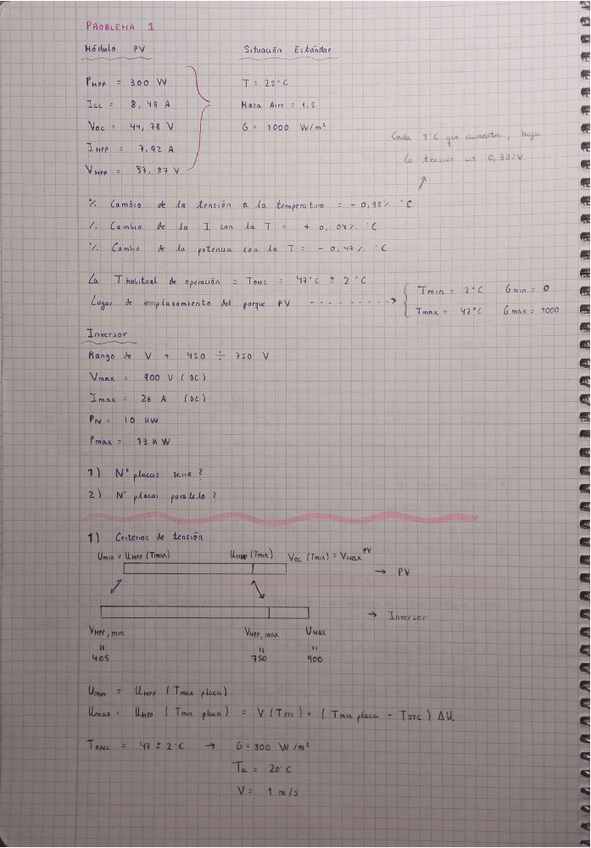 PROBLEMA 1
Módulo PV
Situación Estándar
PMPP = 300 W
T = 25°C
ICC = 8,48 A
Masa Aire = 1,5
VOC = 44,78 V
G = 1000 W/m²
IMPP = 7,92 A
VMPP = 37,87 V
Cada 1°C que aumenta, baja
la tensión un 0,38%V
% Cambio de la tensión a la temperatura = - 0,38% °C
% Cambio de la I con la T = + 0,04% °C
% Cambio de la potencia con la T = - 0,47% °C
La T habitual de operación = TONC = 47°C ± 2°C
Lugar de emplazamiento del parque PV
Tmin = 2°C Gmin = 0
Tmax = 42°C Gmax = 1000
Inversor
Rango de V → 450 ÷ 750 V
Vmax = 900 V (DC)
Imax = 26 A (DC)
PN = 10 KW
Pmax = 13 KW
1) Nº placas serie?
2) Nº placas paralelo?
1) Criterios de tensión
Umin = UMPP (Tmax) UMPP (Tmin) VOC (Tmin) = VMAX PV
→ PV
→ Inversor
VMPP, min VMPP, max UMAX
" " "
405 750 900
Umin = UMPP (Tmax placa)
Umax = UMPP (Tmin placa) = V (TSTC) + (Tmin placa - TSTC) ΔU
TONC = 47 ± 2°C → G = 800 W/m²
Ta = 20°C
V = 1 m/s